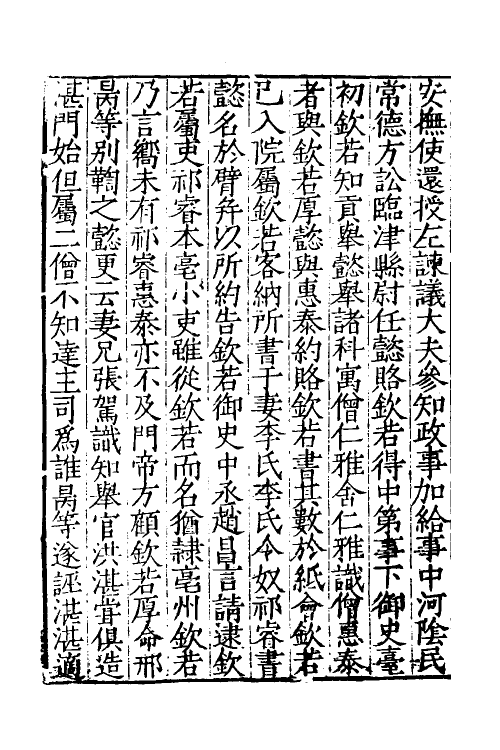 安撫使還授左諫議大夫參知政事加給事中河隂民
常德方訟臨津縣尉任懿賂欽若得中第事下御史臺
初欽若知貢舉懿舉諸科寓僧仁雅舍仁雅識僧惠泰
者與欽若厚懿與惠泰約賂欽若書其數於紙會欽若
已入院屬欽若客納所書于妻李氏李氏令奴祁睿書
懿名於臂并以所約告欽若御史中丞趙昌言請逮欽
若屬吏祁睿本亳小吏雖從欽若而名猶隷亳州欽若
乃言嚮未有祁睿惠泰亦不及門帝方顧欽若厚命邢
昺等别鞫之懿更云妻兄張駕識知舉官洪湛甞俱造
湛門始但屬二僧不知達主司爲誰昺等遂誣湛湛適